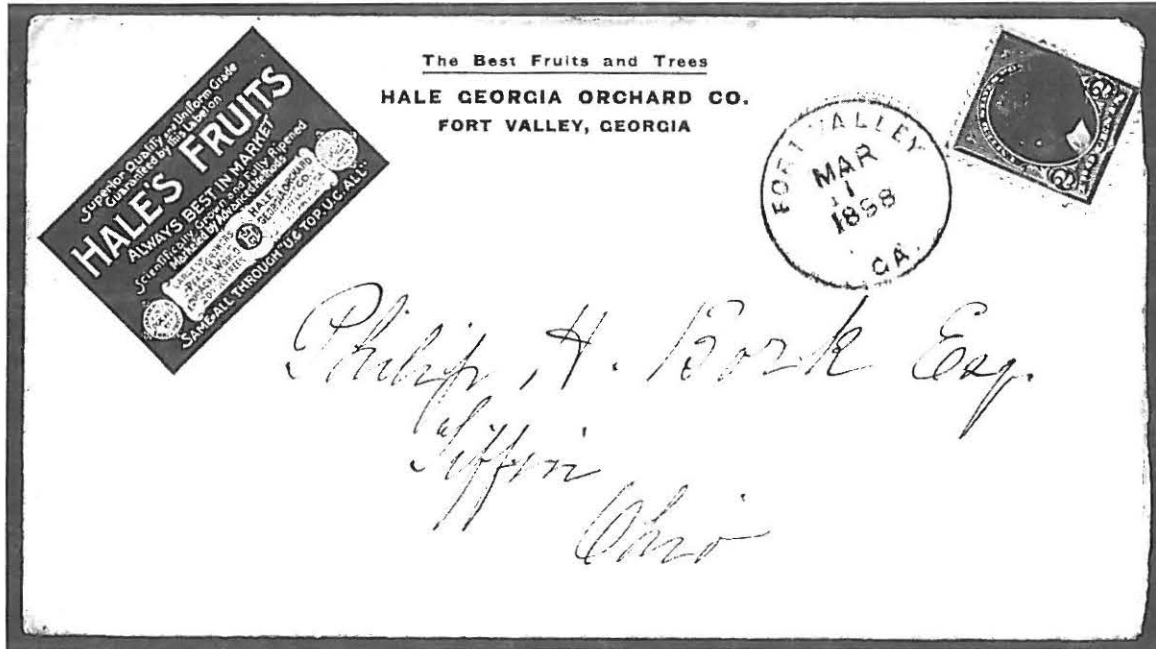 Superior Quality and Uniform Grade
Guaranteed by this Label on
HALE'S FRUITS
ALWAYS BEST IN MARKET
Scientifically Grown and Fully Ripened
Marketed by Advanced Methods
HALE
GEORGIA ORCHARD
CO.
SAME ALL THROUGH "U.C. TOP, U.C. ALL"
The Best Fruits and Trees
HALE GEORGIA ORCHARD CO.
FORT VALLEY, GEORGIA
FORT VALLEY
MAR
1
1898
GA.
Philip H. Bork Esq.
Tiffin
Ohio